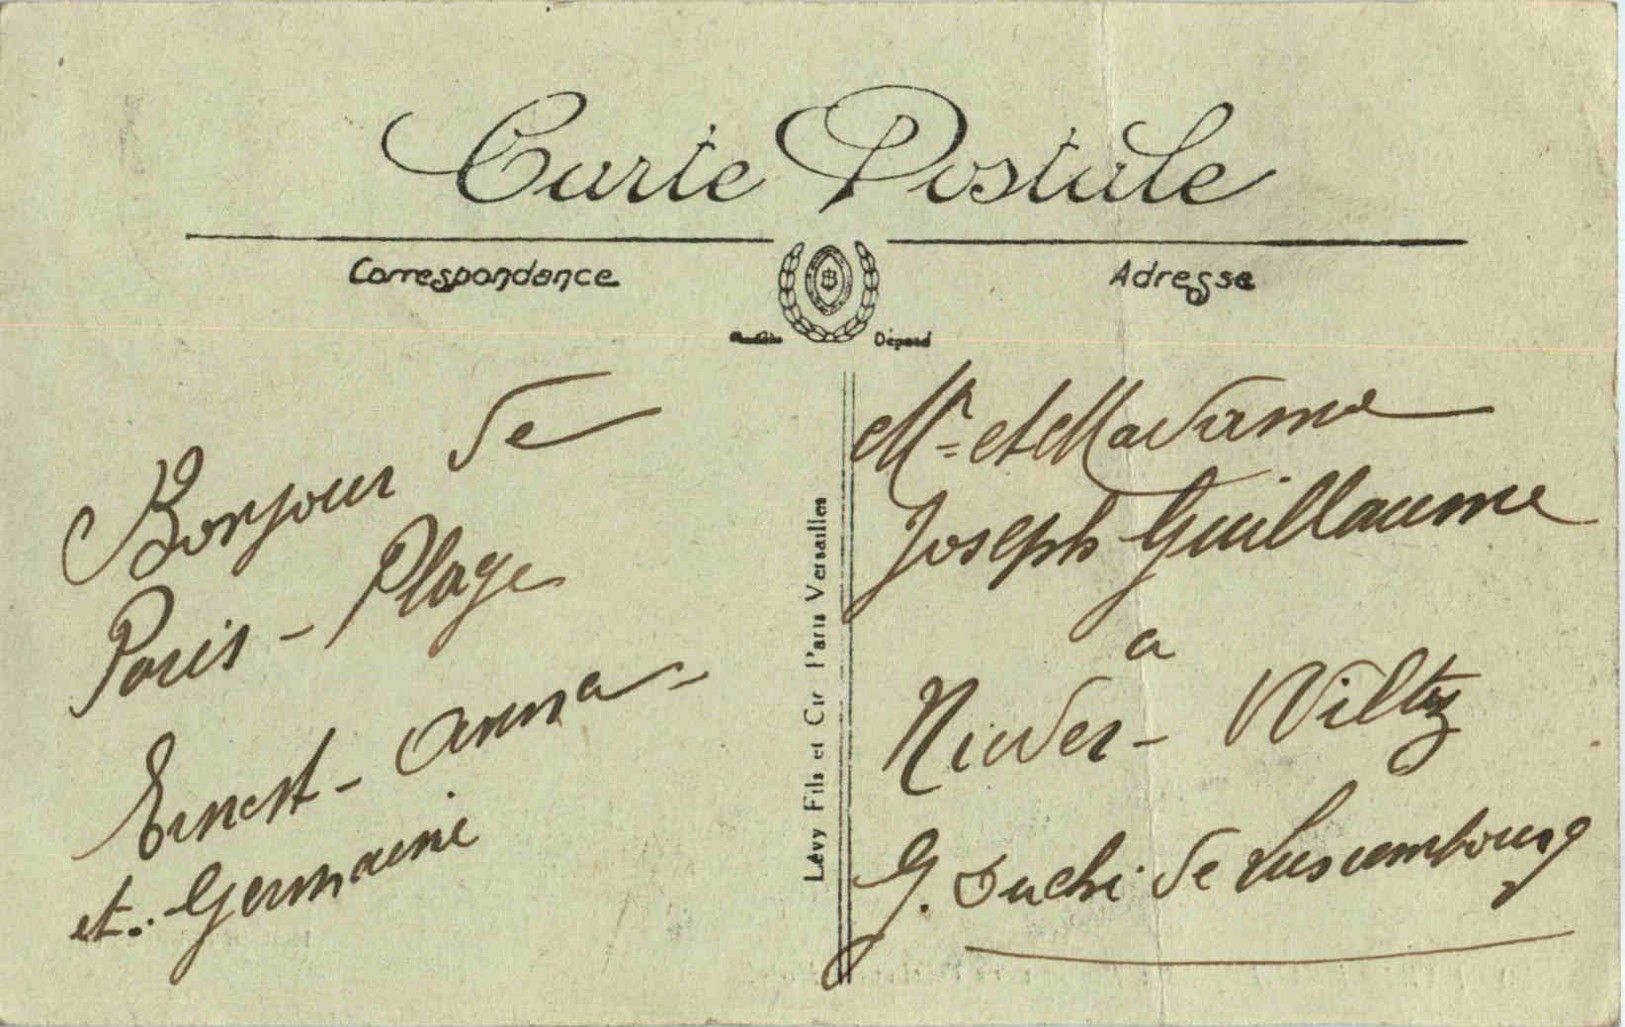 Carte Postale
Correspondance
Adresse
B
Déposé
Lévy Fils et Cie Paris Versailles
Bonjour de
Paris-Plage
Ernest-Anna-
et. Germaine
Mr. et Madame
Joseph Guillaume
a
Nieder-Wiltz
G. Duché de Luxembourg